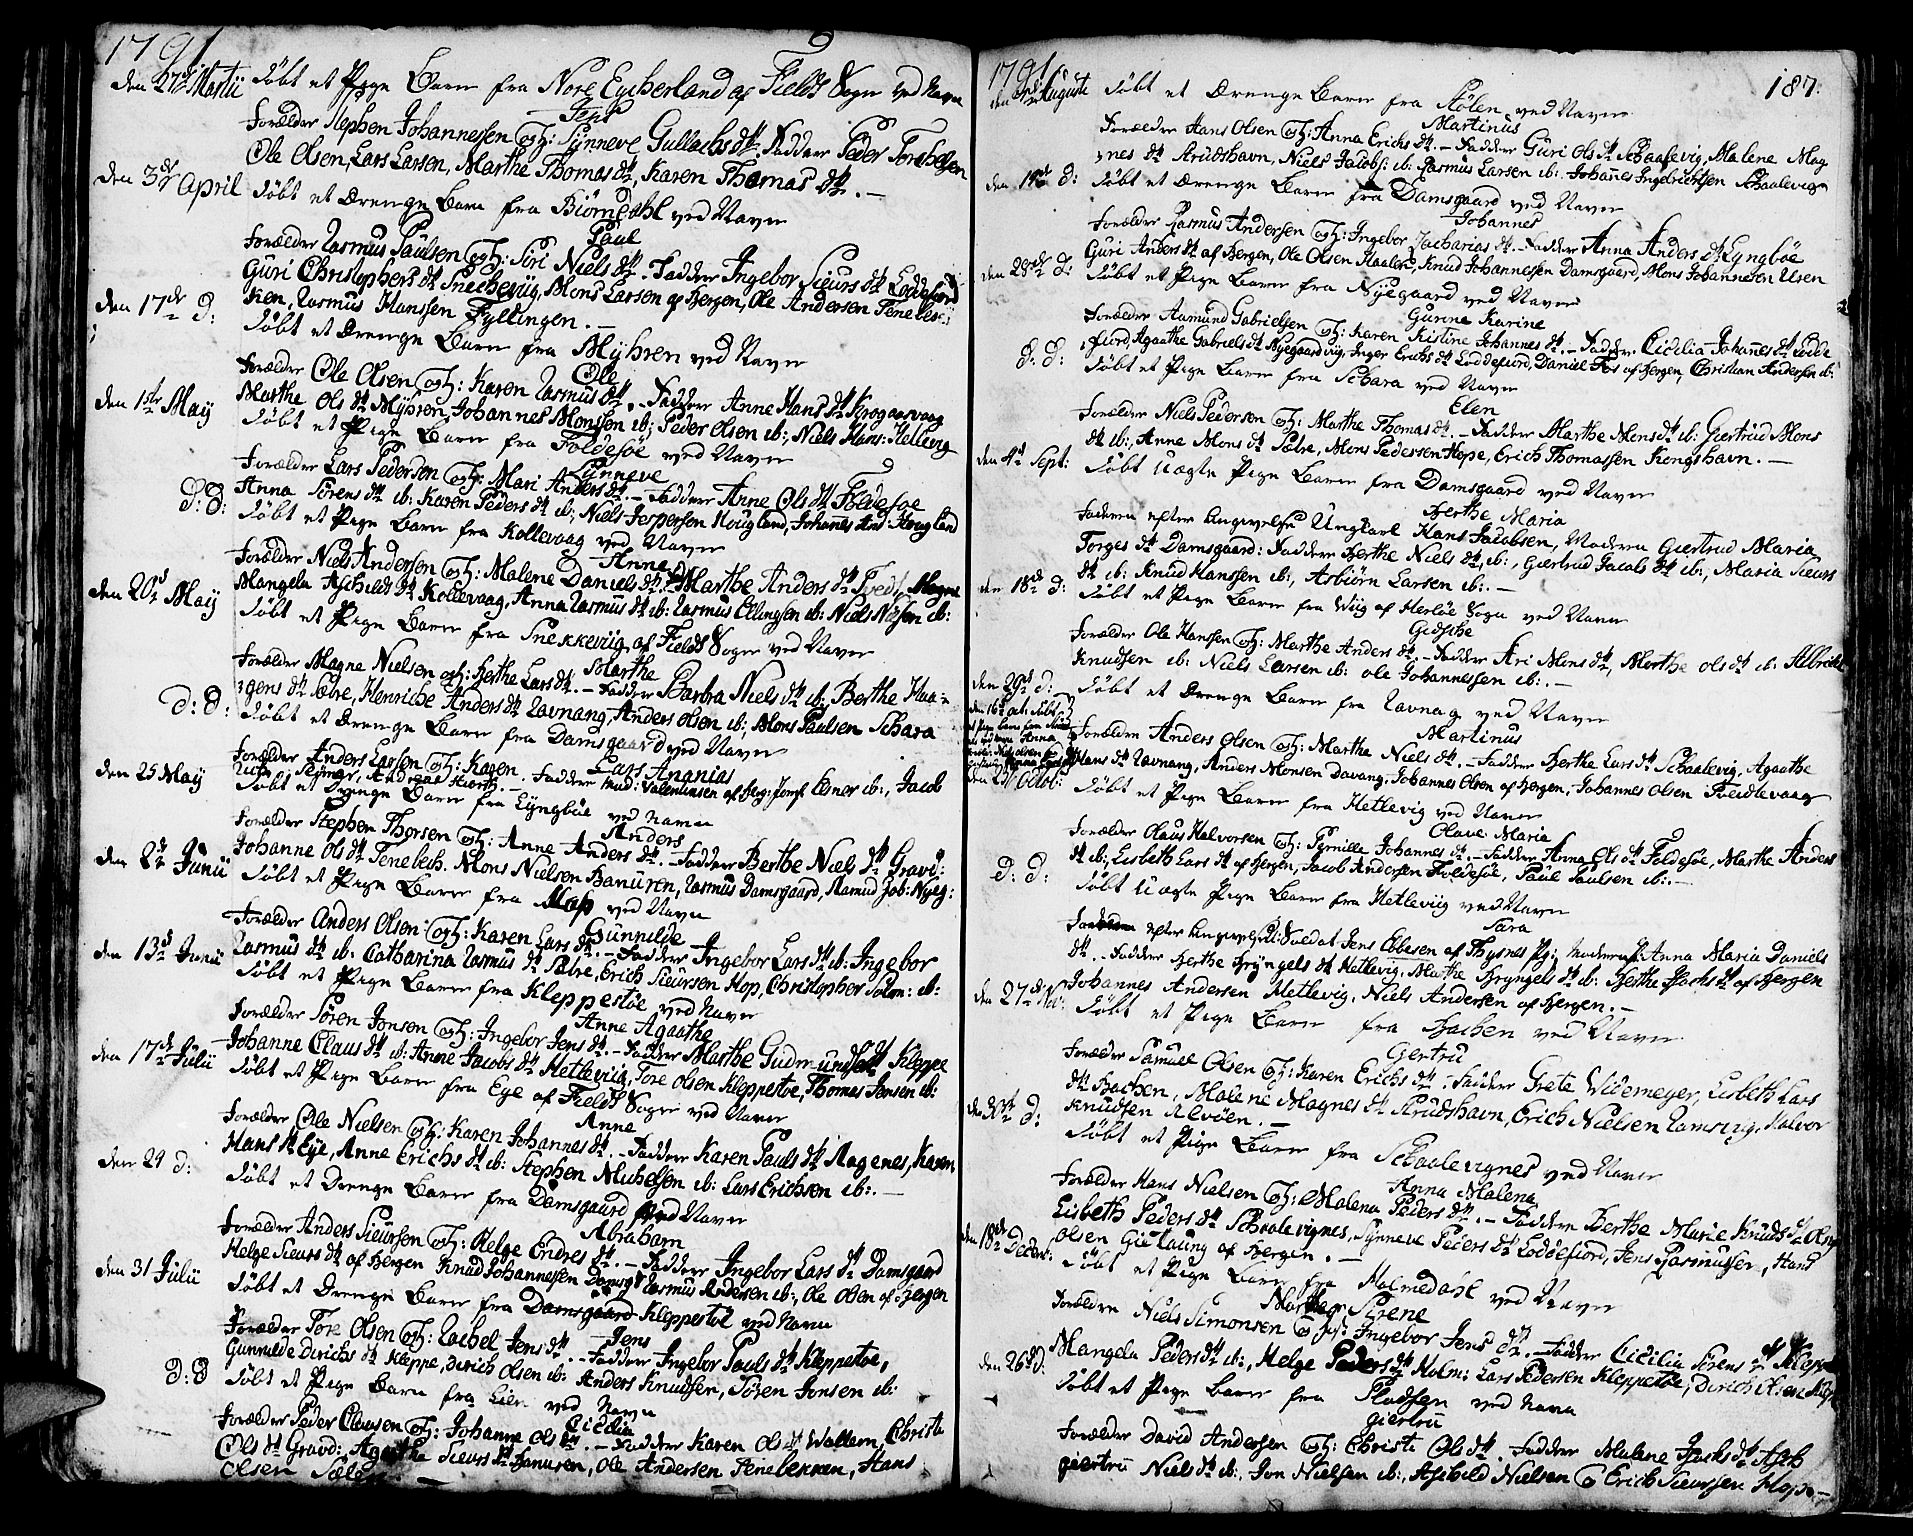 1791
den 27de Martii Døbt et Pige Barn fra Nore Eycherland af Field Sogn ved Navn
Forældre Stephen Johannessen og H: Synneve Gullachs dtr. Faddere Peder Torchelsen
Ole Olsen, Lars Larsen, Marthe Thomas dtr, Karen Thomas dtr. –
den 3de April Døbt et Drenge Barn fra Biørndahl ved Navn
Paul
Forældre Rasmus Paulsen og H: Siri Niels dtr. Faddere Ingebor Sieurs dtr Loddefiord
Guri Christophers dtr Snechevig, Mons Larsen af Bergen, Ole Andersen Tenebec
ken, Rasmus Hanssen Fyllingen. –
den 17de d: Døbt et Drenge Barn fra Myhren ved Navn
Ole
Forældre Ole Olsen og H: Karen Rasmus dtr. – Faddere Anne Hans dtr Krogaasvaag
Marthe Ols dtr Myhren, Johannes Monssen ib:, Peder Olsen ib:, Niels Hans: Hellevig
den 1ste May Døbt et Pige Barn fra Foldesøe ved Navn
Synneve
Forældre Lars Pedersen og H: Mari Anders dtr. – Faddere Anne Ols dtr Foldesøe
Anna Sørens dtr ib: Karen Peders dtr ib:, Niels Jespersen Hougland, Johannes And: Hougland
d: d: Døbt et Pige Barn fra Kollevaag ved Navn
Anne
Forældre Niels Andersen og H: Malene Daniels dtr. – Marthe Anders dtr
Mangela Aschilds dtr Kollevaag, Anna Rasmus dtr ib: Rasmus Ellingsen ib: Niels Nilsen ib:
den 20de May Døbt et Pige Barn fra Snekkeviig af Field Sogn ved Navn
Marthe
Forældre Magne Nielsen og H: Berthe Lars dtr. – Faddere Barbra Niels dtr ib: Berthe Haa-
gens dtr Sælre, Henriche Anders dtr Ravnang, Anders Olsen ib: Mons Paulsen Schara
d: d: Døbt et Drenge Barn fra Damsgaard ved Navn
Lars Ananias
Forældre Anders Larsen og H: Karen. Faddere Mad: Valentinsen af Berg: Jomf: Elsner ib:, Jacob
den 25 May Døbt et Drenge Barn fra Lyngbøe ved Navn
Anders
Forældre Stephen Thorsen og H: Anne Anders dtr. – Faddere Berthe Niels dtr Gravd:
Johanne Ols dtr Tenebech. Mons Nielsen Banuren, Rasmus Damsgaard, Aamud Job: Nyeg:
den 2de Junii Døbt et Pige Barn fra Hop ved Navn
Gunnilde
Forældre Anders Olsen og H: Karen Lars dtr. – Faddere Ingebor Lars dtr ib: Ingebor
Rasmus dtr ib: Catharina Rasmus dtr Sælre, Erich Sieursen Hop, Christopher Salom: ib:
den 13de Junii Døbt et Pige Barn fra Kleppestøe ved Navn
Anne Agaathe
Forældre Søren Jonsen og H: Ingebor Jens dtr. – Faddere Marthe Gudmunds dtr Kleppe
Johanne Claus dtr ib: Anne Jacobs dtr Hetleviig, Tore Olsen Kleppestøe, Thomas Jensen ib:
den 17de Julii Døbt et Pige Barn fra Eye af Field Sogn ved Navn
Anne
Forældre Ole Nielsen og H: Karen Johannes dtr. – Faddere Karen Pauls dtr Aagenes, Karen
Hans dtr Eye, Anne Erichs dtr ib: Stephen Michelsen ib: Lars Erichsen ib:. –
den 29 d: Døbt et Drenge Barn fra Damsgaard ved Navn
Abraham
Forældre Anders Sieursen og H: Helge Endres dtr. – Faddere Ingebor Lars dtr Damsgaard
Helge Sieurs dtr af Bergen Knud Johannessen Damsg: Rasmus Andersen ib:, Ole Olsen af Bergen
den 31 Julii Døbt et Drenge Barn fra Damsgaard Kleppestøe ved Navn
Jens
Forældre Tore Olsen og H: Rachel Jens dtr. – Faddere Ingebor Pauls dtr Kleppestøe,
Gunnilde Dirichs dtr Kleppe, Dirich Olsen ib: Anders Knudsen, Søren Jonsen ib:
d: d Døbt et Pige Barn fra Lien ved Navn
Cicilia
Forældre Peder Clausen og H: Johanne Ols dtr. – Faddere Karen Ols dtr Wallem, Christi
Ols dtr Gravd:, Agaathe Sieurs dtr Banuren, Ole Andersen Tenebekken, Hans
Olsen
1791
187:
Auguste Døbt et Drenge Barn fra Stølen ved Navn
Martinus
Forældre Hans Olsen og H: Anna Erichs dtr. – Faddere Guri Ols dtr Schaalevig, Malene Mag
nes dtr Strudshavn, Niels Jacobs: ib: Rasmus Larsen ib:. Johannes Ingebrichtsen Schaalevig
den 14de d: Døbt et Drenge Barn fra Damsgaard ved Navn
Johannes
Forældre Rasmus Andersen og H: Ingebor Zacharias dtr. – Faddere Anna Anders dtr Lyngbøe
Guri Anders dtr af Bergen, Ole Olsen Haaler, Knud Johannessen Damsgaard, Mons Johannesen Uren
den 28de d: Døbt et Pige Barn fra Nyegaard ved Navn
Gurine Karine
Forældre Aamund Gabrielsen og H: Karen Kistine Johannes dtr. – Faddere Cicilia Johannes dtr Lodde
fiord, Agaathe Gabriels dtr Nyegaardviig, Inger Erichs dtr Loddefiord, Daniel Fos af Bergen, Christian Andersen ib:
d: d: Døbt et Pige Barn fra Schara ved Navn
Elen
Forældre Niels Pedersen og H: Marthe Thomas dtr. – Faddere Marthe Mons dtr ib: Giertrud Mons
dtr ib:, Anne Mons dtr Sælre, Mons Pedersen Hope, Erich Thomassen Kongshavn. –
den 4de Sept: Døbt Uægte Pige Barn fra Damsgaard ved Navn
Berthe Maria
Faderen efter Angivelse Ungkarl Hans Jacobsen, Moderen Giertrud Maria
Torges dtr Damsgaard: Faddere Berthe Niels dtr ib:, Giertrud Jacobs dtr ib:, Maria Sieurs
dtr ib: Knud Hanssen ib:, Asbiørn Larsen ib:. –
den 18de d: Døbt et Pige Barn fra Wiig af Herløe Sogn ved Navn
Gidsche
Forældre Ole Hanssen og H: Marthe Anders dtr. – Faddere Ari Mons dtr, Marthe Ols dtr ib: Albricht
Knudsen ib: Niels Larsen ib: Ole Johannessen ib:. –
den 29de d: Døbt et Drenge Barn fra Ravnag ved Navn
Martinus
den 16de oct: Døbt
Anna
Forældre Anders Olsen og H: Marthe Niels dtr. – Faddere Berthe Lars dtr Schaalevig, Agaathe
Hans dtr Ravnang, Anders Monsen Davang, Johannes Olsen af Bergen, Johannes Olsen Tveidtevaag
Octob: Døbt et Pige Barn fra Hetlevig ved Navn
Olave Maria
Forældre Olaus Halvorsen og H: Pernille Johannes dtr. – Faddere Anna Ols dtr Foldesøe, Marthe Anders
dtr ib:, Lisbeth Lars dtr af Bergen, Jacob Andersen Foldesøe, Paul Paulsen ib:. –
d: d: Døbt Uægte Pige Barn fra Hetleviig ved Navn
Sara
efter Angivelse Soldat Jens Ebbesen af Thysnes Pg: Moderen P: Anna Maria Daniels
dtr. – Faddere Berthe Bryngels dtr Hetlevig, Marthe Bryngels dtr ib: Berthe dtr af Bergen
Johannes Andersen Hetlevig, Niels Andersen af Bergen. –
den 27de Døbt et Pige Barn fra Bachen ved Navn
Giertru
Forældre Samuel Olsen og H: Karen Erichs dtr. – Faddere Grete Widemeyer, Lisbeth Lars
dtr Bachen, Malene Magnes dtr Strudshavn, Erich Nielsen Ramsvig, Halvor
Knudsen Alvøen. –
d: Døbt et Pige Barn fra Schaalevignes ved Navn
Anna Malena
Forældre Hans Nielsen og H: Malena Peders dtr. – Faddere Berthe Marie Knuds dtr
Lisbeth Peders dtr Schaalevignes, Synneve Peders dtr Loddefiord, Jens Rasmussen, Hans
Olsen af Bergen. –
den 18de Decbr: Døbt et Pige Barn fra Holmedahl ved Navn
Marthe Sirene
Forældre Niels Simonsen og H: Ingebor Jens dtr. – Faddere Cicilia Sørens dtr Kleppe
Mangela Peders dtr ib:, Helge Peders dtr Holm: Lars Pedersen Kleppestøe, Dirich Olsen Klep
den 26de d: Døbt et Pige Barn fra Pladsen ved Navn
Giertru
Forældre David Andersen og H: Christi Ols dtr. Faddere Malene dtr Ask
Giertru Niels dtr ib:, Jon Nielsen ib:, Aschild Nielsen & Erich Sieurssen Hop. –